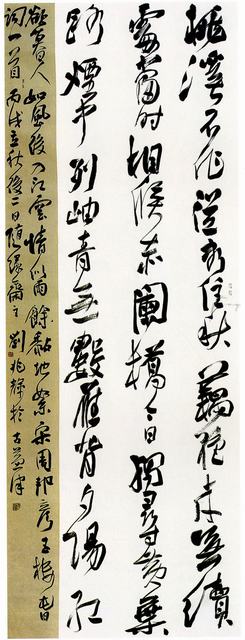 桃溪不作從容住秋藕絕來無續
處當時相候赤闌橋今日獨尋黃葉
路煙中列岫青無數雁背夕陽紅
欲暮人如風後入江雲情似雨餘黏地絮宋周邦彥玉樓春
詞一首丙戌立秋後二日隨緣齋主劉兆於古益津